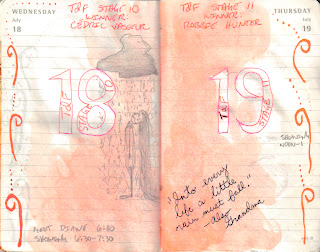 WEDNESDAY
July
18
TdF STAGE 10
WINNER:
CÉDRIC VASSEUR
18
TdF
STAGE
DIANE
6:30-7:30
THURSDAY
July
19
TdF STAGE 11
WINNER:
ROBBIE HUNTER
19
TdF
STAGE 11
SHOSHANA
NOON-1
"Into every
life a little
rain must fall."
-also
Grandma